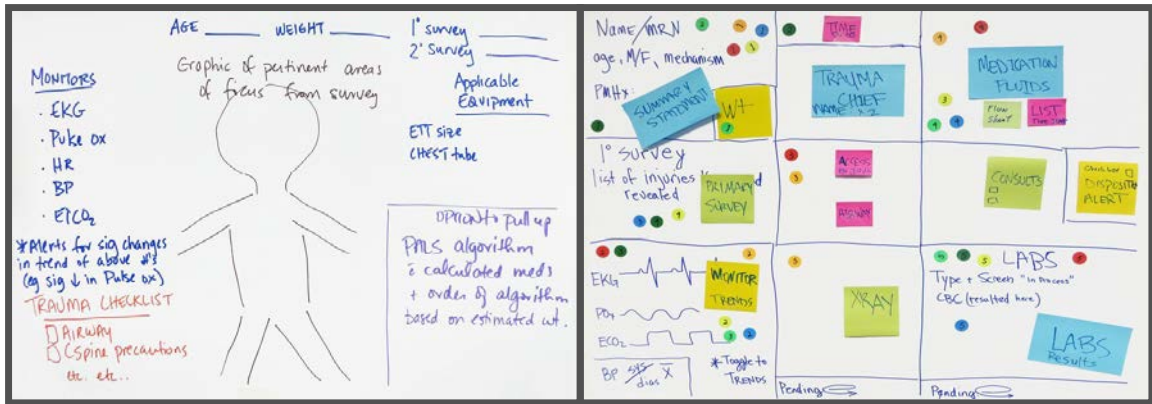 AGE ____ WEIGHT ____
1° survey ____
2° survey ____
Graphic of pertinent areas
of focus from survey
Applicable
EQUIPMENT
ETT size
CHEST tube
MONITORS
• EKG
• Pulse ox
• HR
• BP
• ETCO₂
*Alerts for sig changes
in trend of above #'s
(eg sig ↓ in Pulse ox)
TRAUMA CHECKLIST
□ AIRWAY
□ Cspine precautions
etc. etc..
OPTION to pull up
PALS algorithm
c̄ calculated meds
+ order of algorithm
based on estimated wt.
Name/MRN
age, M/F, mechanism
PMHx:
SUMMARY
STATEMENT
Wt
TIME
TRAUMA
CHIEF
NAME x2
MEDICATION
FLUIDS
Flow
Sheet
LIST
1° survey
list of injuries
revealed
PRIMARY
SURVEY
ACCESS
AIRWAY
CONSULTS
□
□
□
ALERT
EKG
PO₂
ECO₂
BP sys/dias X̄
MONITOR
TRENDS
*Toggle to
TRENDS
XRAY
Pending
LABS
Type + Screen "in Process"
CBC (resulted here)
LABS
Results
Pending